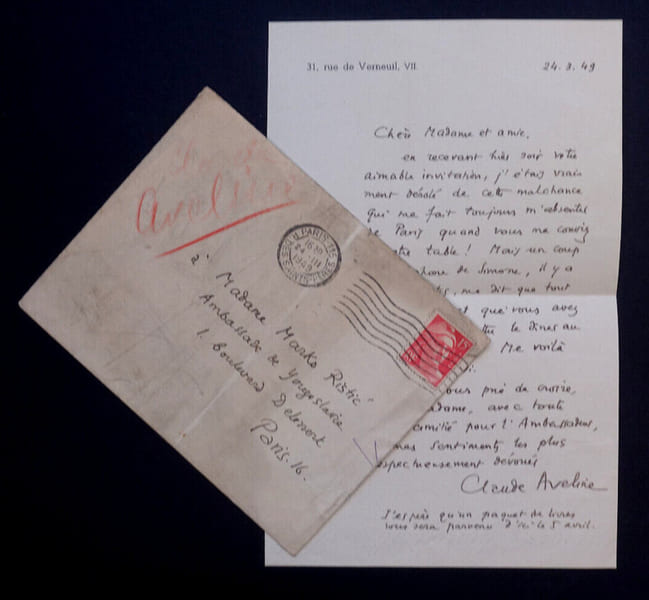 31, rue de Verneuil, VII.
24.3.49
Chère Madame et amie,
en recevant hier soir votre
aimable invitation, j'étais vrai
ment désolé de cette malchance
qui me fait toujours m'absenter
de Paris quand vous me conviez
votre table! Mais un coup
phone de Simone, il y a
me dit que tout
et que vous avez
le dîner au
Me voilà
vous prie de croire,
adame, avec toute
amitié pour l'Ambassadeur,
mes sentiments les plus
espectueusement dévoués
Claude Aveline
J'espère qu'un paquet de livres
vous sera parvenu d'ici le 5 avril.
Aveline
PARIS
24 III
1949
DES SAINTS-PÈRES
15
à
Madame Marko Ristić
Ambassade de Yougoslavie
1. Boulevard Delessert
Paris.16.